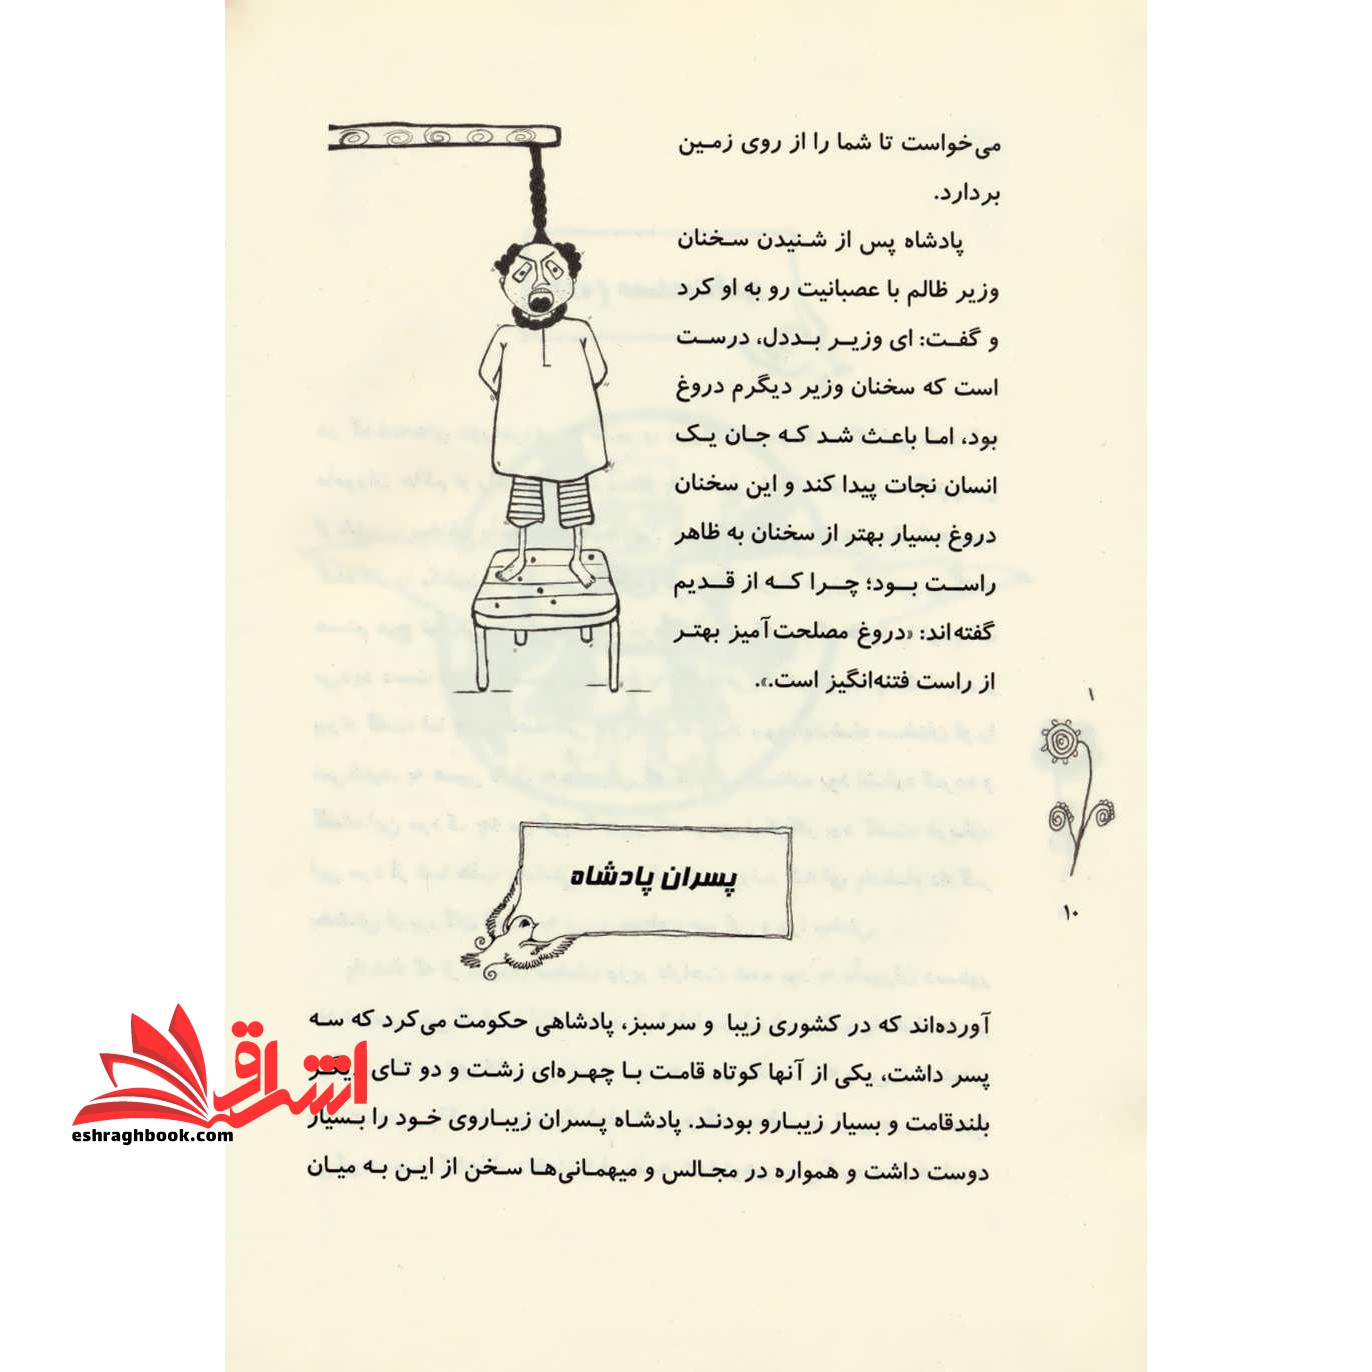 می‌خواست تا شما را از روی زمین
بردارد.
پادشاه پس از شنیدن سخنان
وزیر ظالم با عصبانیت رو به او کرد
و گفت: ای وزیر بددل، درست
است که سخنان وزیر دیگرم دروغ
بود، اما باعث شد که جان یک
انسان نجات پیدا کند و این سخنان
دروغ بسیار بهتر از سخنان به ظاهر
راست بود؛ چرا که از قدیم
گفته‌اند: «دروغ مصلحت‌آمیز بهتر
از راست فتنه‌انگیز است.».
۱۰
پسران پادشاه
آورده‌اند که در کشوری زیبا و سرسبز، پادشاهی حکومت می‌کرد که سه
پسر داشت، یکی از آنها کوتاه قامت با چهره‌ای زشت و دو تای دیگر
بلندقامت و بسیار زیبارو بودند. پادشاه پسران زیباروی خود را بسیار
دوست داشت و همواره در مجالس و میهمانی‌ها سخن از این به میان
اشراق
eshraghbook.com